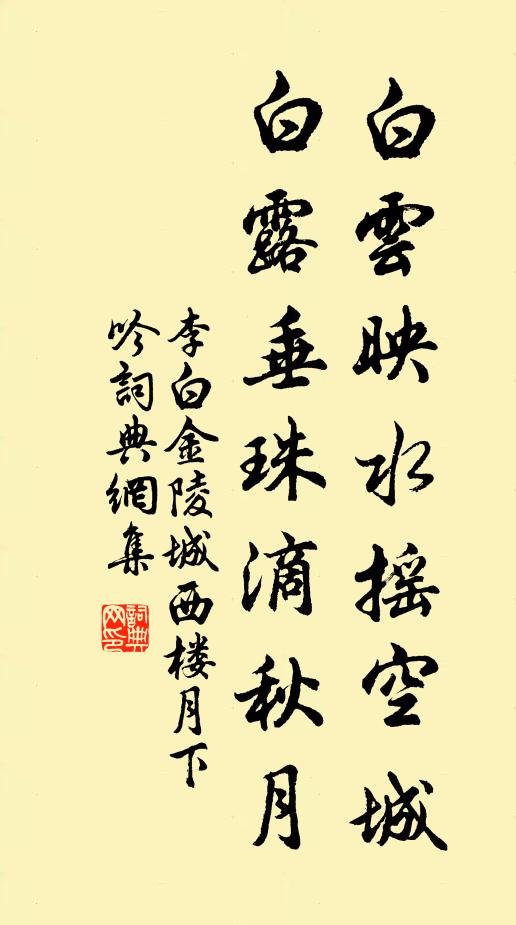 白雲映水摇空城
白露垂珠滴秋月
李白金陵城西楼月下
吟詞典網集
詞典
网印